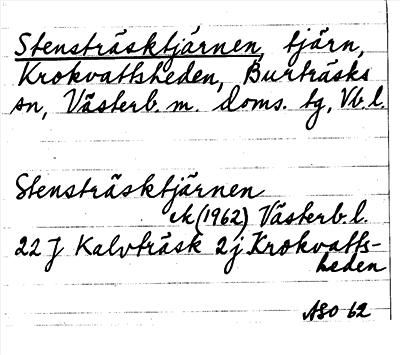 Stensträsktjärnen, tjärn,
Krokvattsheden, Burträsks
sn, Västerb. m. doms. tg, Vb. l.
Stensträsktjärnen
ek (1962) Västerb. l.
22 J Kalvträsk 2 j Krokvatts-
heden
ASO 62